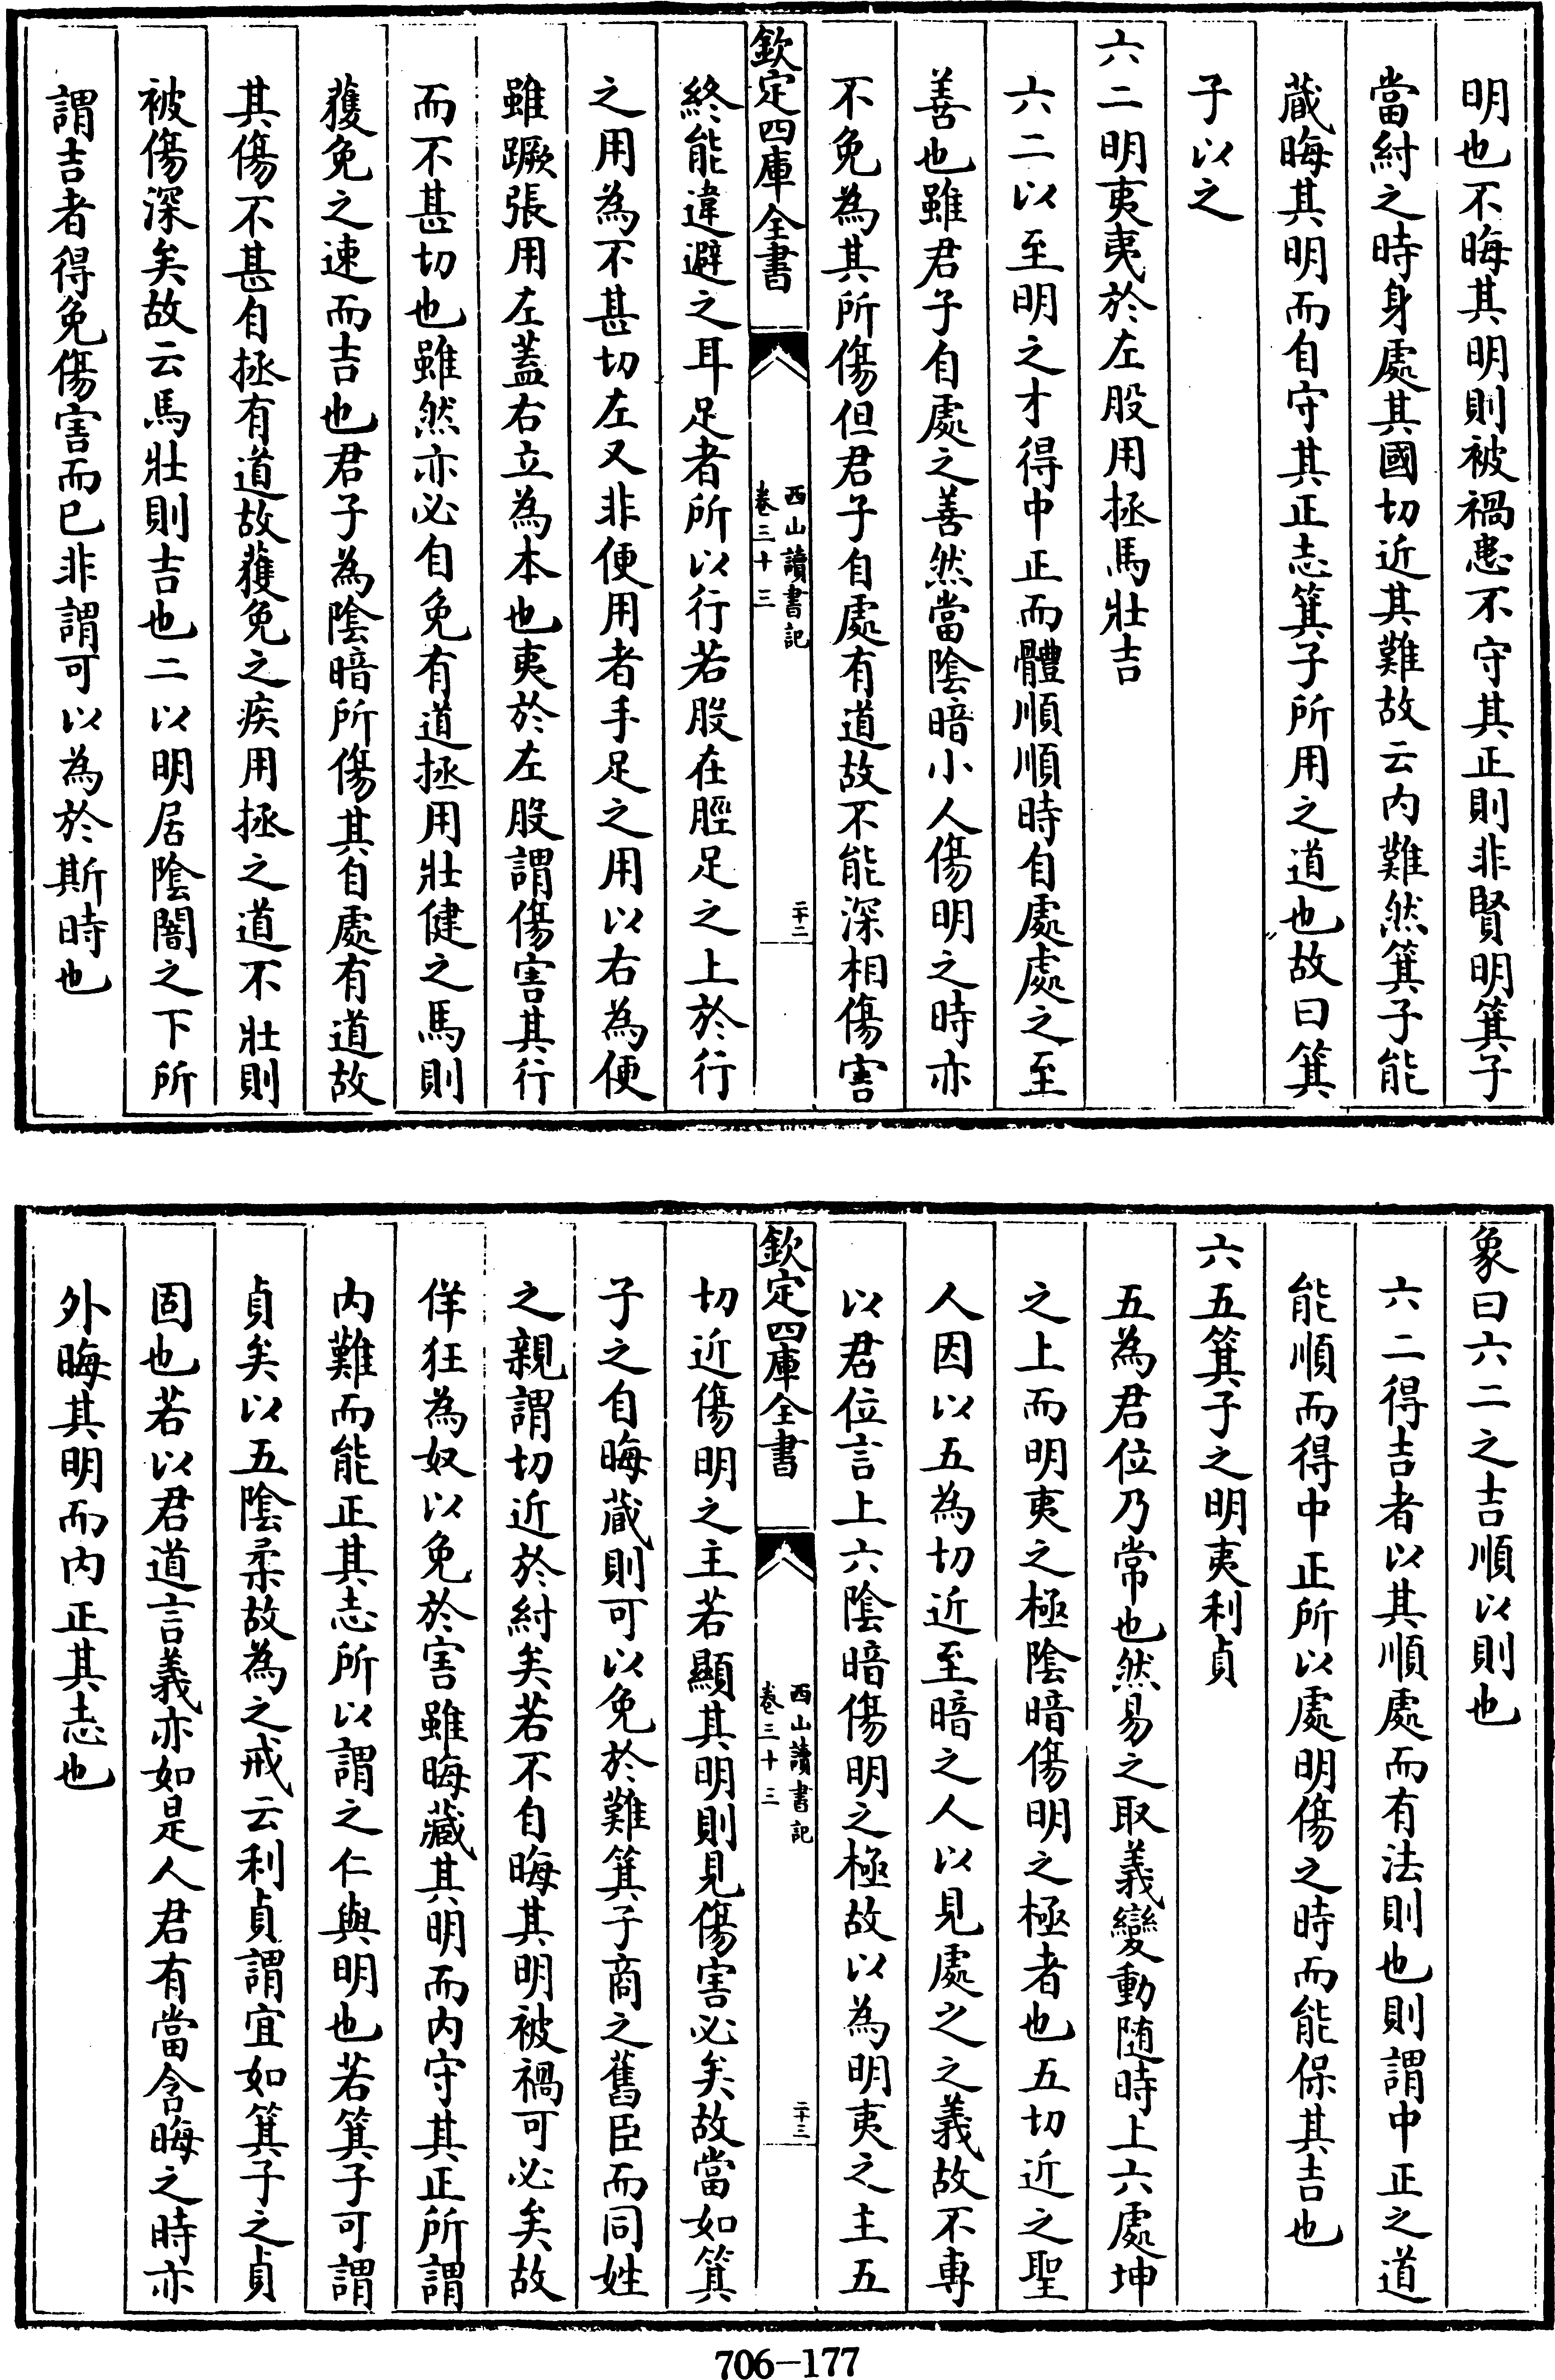 明也不晦其明則被禍患不守其正則非賢明箕子
當紂之時身處其國切近其難故云内難然箕子能
蔵晦其明而自守其正志箕子所用之道也故曰箕
子以之
六二明夷夷於左股用拯馬壯吉
六二以至明之才得中正而體順順時自處處之至
善也雖君子自處之善然當陰暗小人傷明之時亦
不免為其所傷但君子自處有道故不能深相傷害
欽定四庫全書
西山讀書記
卷三十三
二十二
終能違避之耳足者所以行若股在脛足之上於行
之用為不甚切左又非便用者手足之用以右為便
雖蹶張用左蓋右立為本也夷於左股謂傷害其行
而不甚切也雖然亦必自免有道拯用壯健之馬則
獲免之速而吉也君子為陰暗所傷其自處有道故
其傷不甚自拯有道故獲免之疾用拯之道不壯則
被傷深矣故云馬壯則吉也二以明居陰闇之下所
謂吉者得免傷害而已非謂可以為於斯時也
象曰六二之吉順以則也
六二得吉者以其順處而有法則也則謂中正之道
能順而得中正所以處明傷之時而能保其吉也
六五箕子之明夷利貞
五為君位乃常也然易之取義變動隨時上六處坤
之上而明夷之極陰暗傷明之極者也五切近之聖
人因以五為切近至暗之人以見處之之義故不專
以君位言上六陰暗傷明之極故以為明夷之主五
欽定四庫全書
西山讀書記
卷三十三
二十三
切近傷明之主若顯其明則見傷害必矣故當如箕
子之自晦蔵則可以免於難箕子商之舊臣而同姓
之親謂切近於紂矣若不自晦其明被禍可必矣故
佯狂為奴以免於害雖晦藏其明而内守其正所謂
内難而能正其志所以謂之仁與明也若箕子可謂
貞矣以五陰柔故為之戒云利貞謂宜如箕子之貞
固也若以君道言義亦如是人君有當含晦之時亦
外晦其明而内正其志也
706-177